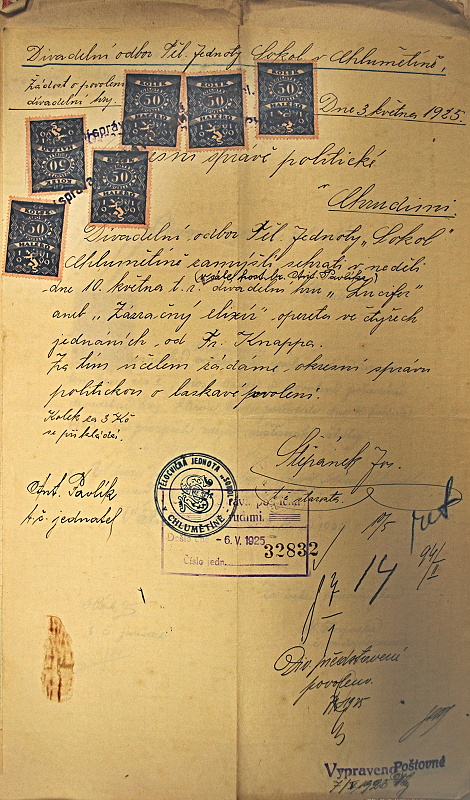 Divadelní odbor Těl. Jednoty Sokol v Chlumětíně,
Žádost o povolení
divadelní hry.
Dne 3. května 1925.
správě politické
v
Chrudimi.
Divadelní odbor Těl. Jednoty „Sokol"
Chlumětíně zamýšlí sehrati v neděli
(v sále host. br. Ant. Pavlíka)
dne 10. května t. r. divadelní hru „Lucifer"
aneb „Zázračný elixír" opereta ve čtyřech
jednáních, od Fr. Knappa.
Za tím účelem žádáme, okresní správu
politickou o laskavé povolení.
Kolek za 3 Kč
se přikládá.
Štěpánek Jos.
t. č. starosta.
Ant. Pavlík
t. č. jednatel
TĚLOCVIČNÁ JEDNOTA „SOKOL"
V CHLUMĚTÍNĚ
politická
Došlo - 6. V. 1925
Číslo jedn. 32832
14
Div. představení
povoleno.
1925
Vypraveno Poštovně
KOLEK
50
HALÉŘŮ
KOLEK
50
HALÉŘŮ
KOLEK
50
HALÉŘŮ
KOLEK
50
HALÉŘŮ
KOLEK
50
HALÉŘŮ
KOLEK
50
HALÉŘŮ